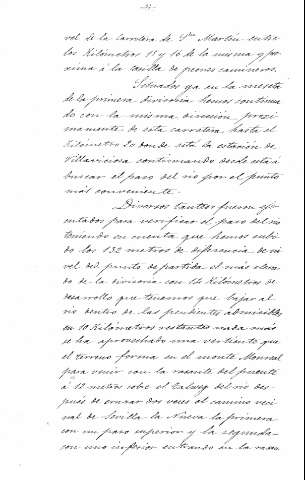 vel de la carretera de Sn. Martin entre
los Kilómetros 15 y 16 de la misma y pro-
xima á la casilla de peones camineros.
Situados ya en la meseta
de la primera divisoria hemos continua-
do con la misma direccion proxi-
mamente de esta carretera, hasta el
Kilómetro 20 donde está la estación de
Villaviciosa continuando desde esta á
buscar el paso del rio por el punto
más conveniente.
Diversos tanteos fueron eje-
cutados para verificar el paso del rio
teniendo en cuenta que hemos subi-
do los 132 metros de diferencia de ni-
vel del punto de partida al más eleva-
do de la divisoria con 14 Kilómetros de
desarrollo que tenemos que bajar al
rio dentro de las pendientes admisibles
en 10 Kilómetros restantes nada más
se ha aprovechado una vertiente que
el terreno forma en el monte Monreal
para venir con la rasante del puente
á 12 metros sobre el Zalweg del rio des-
pués de cruzar dos veces el camino veci-
nal de Sevilla la Nueva la primera
con un paso superior y la segunda
con uno inferior entrando en la